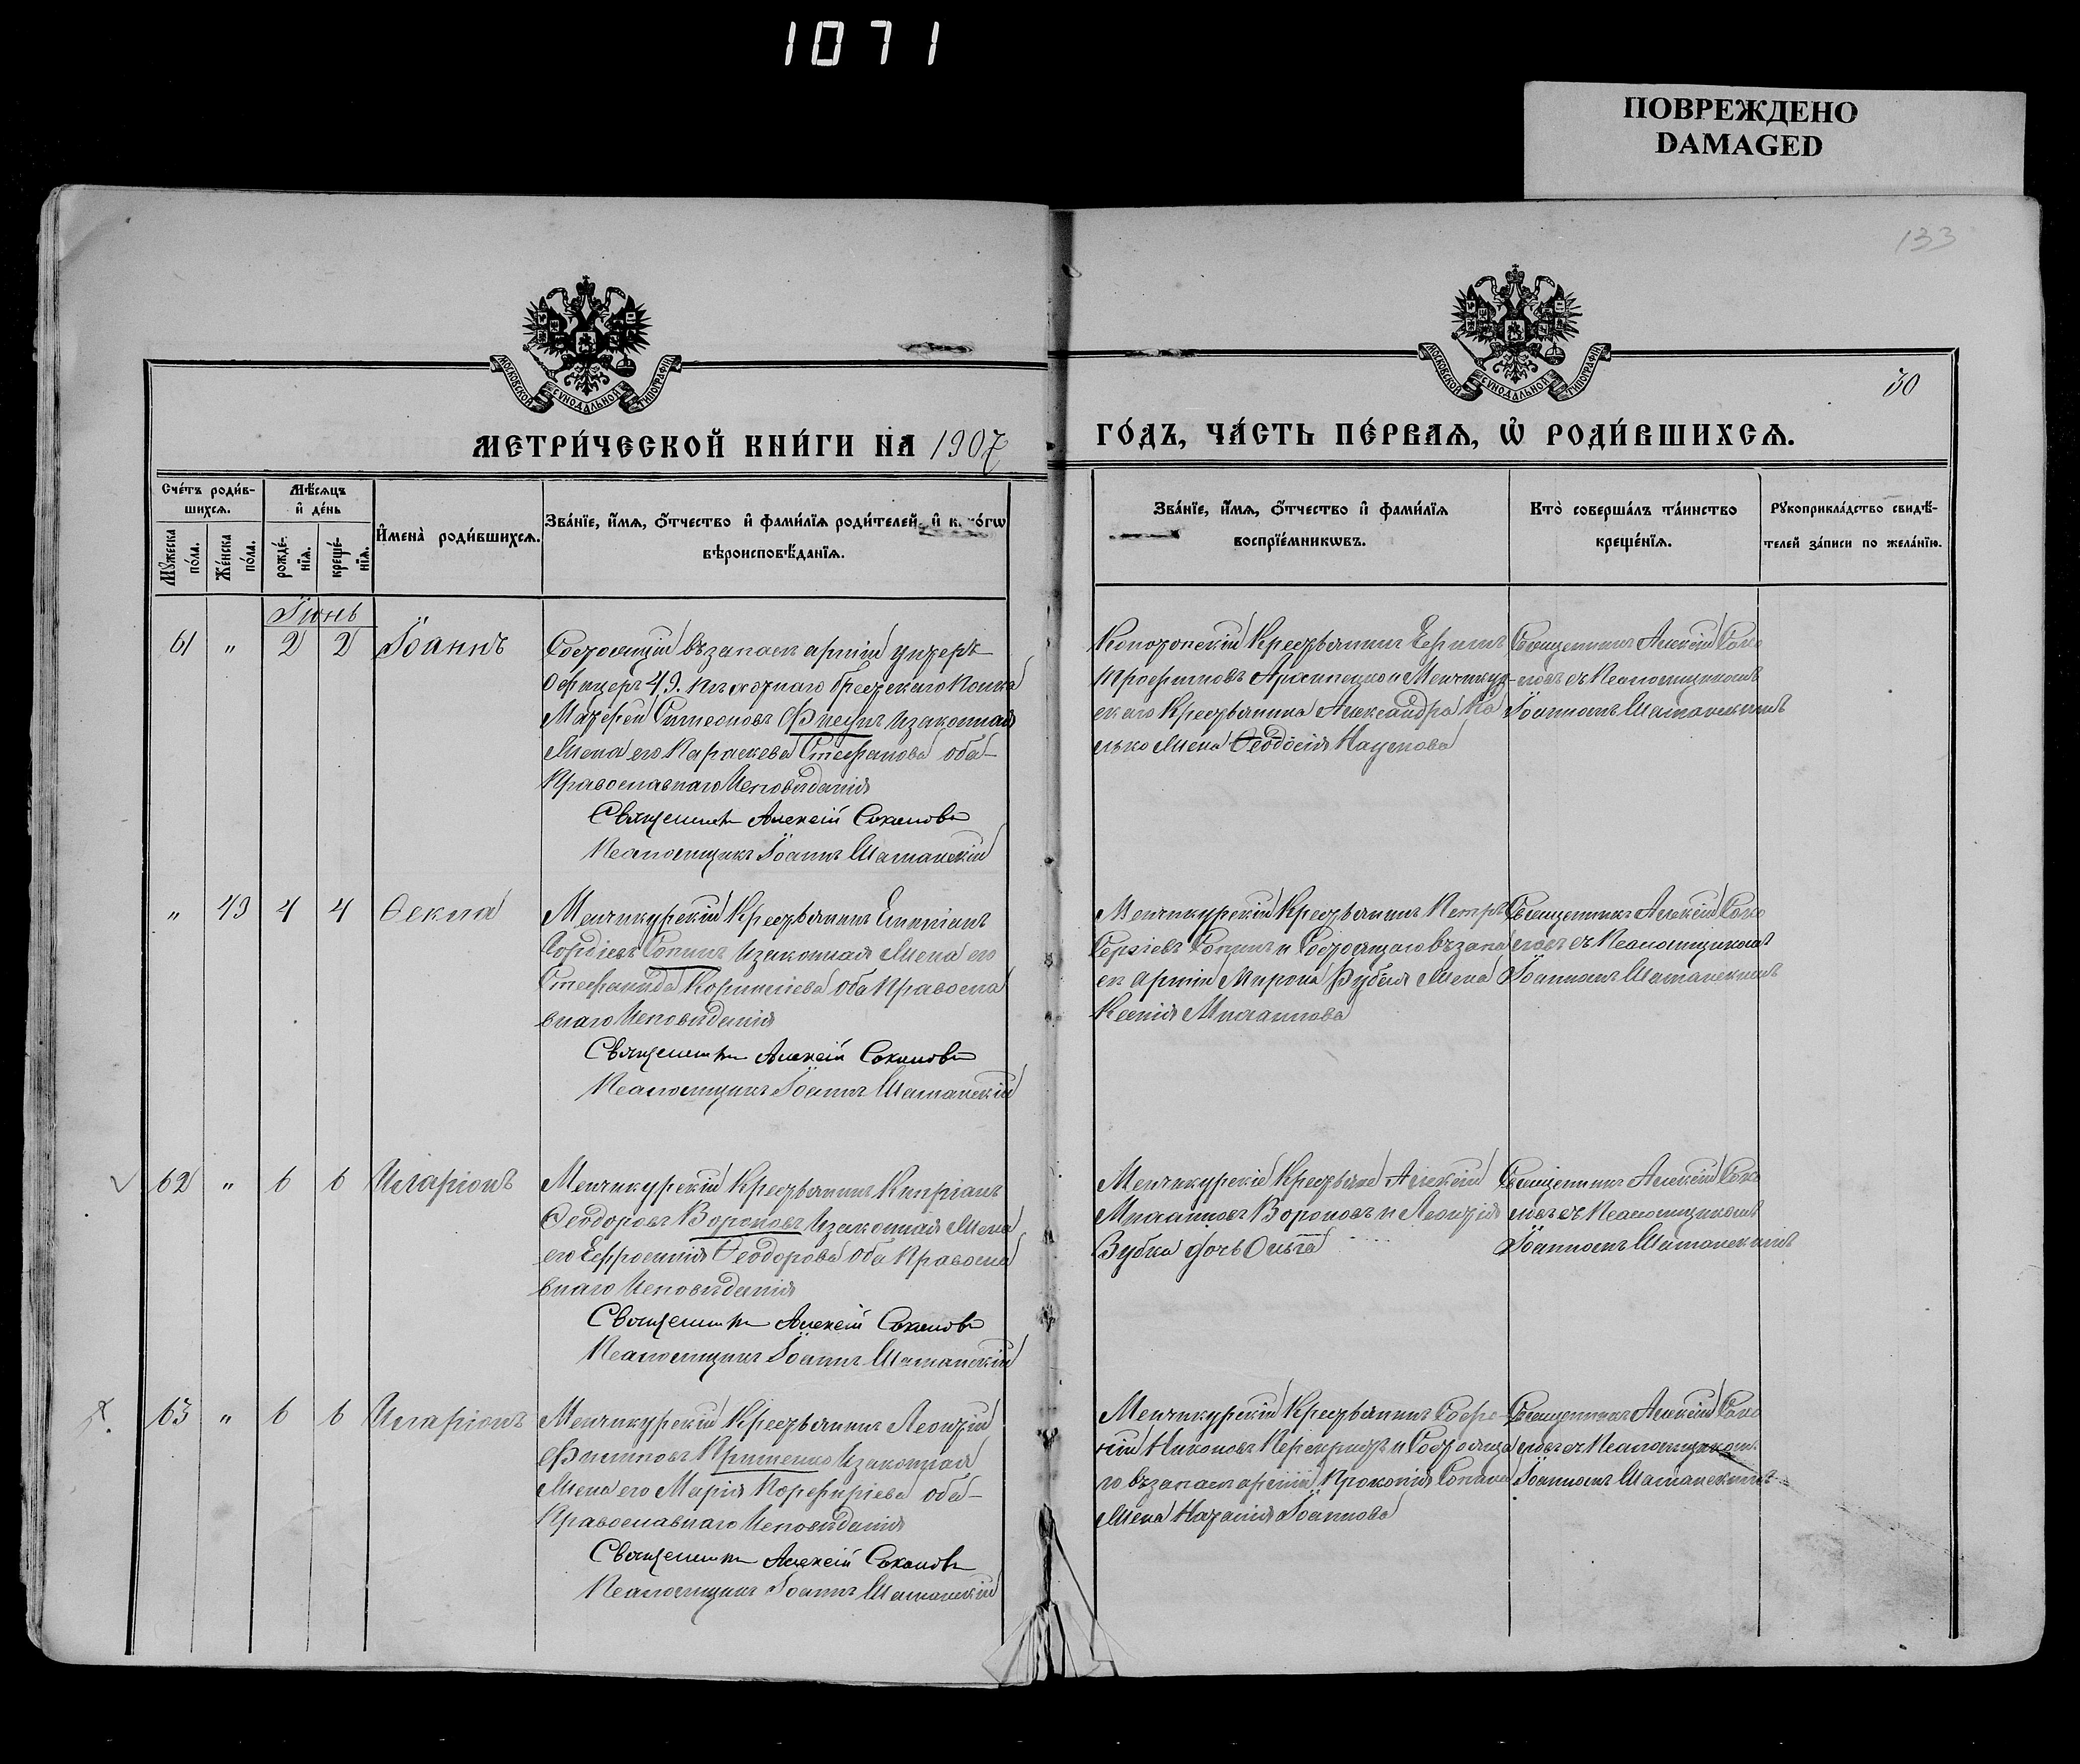 1071
ПОВРЕЖДЕНО
DAMAGED
133
30
МОСКОВСКОЙ СѴНОДАЛЬНОЙ ТИПОГРАФІИ
МОСКОВСКОЙ СѴНОДАЛЬНОЙ ТИПОГРАФІИ
МЕТРИ́ЧЕСКОЙ КНИ́ГИ НА 1907 ГО́ДЪ, ЧА́СТЬ ПЕ́РВАѦ, Ѡ҆ РОДИ́ВШИХСѦ.
Сче́тъ роди́в-
шихсѧ.
Мꙋ́жеска по́ла.
Же́нска по́ла.
Мѣ́сѧцъ
и҆ де́нь
рожде́-нїѧ.
креще́-нїѧ.
И҆мена̀ роди́вшихсѧ.
Зва́нїе, и҆́мѧ, ѻ҆́тчество и҆ фами́лїѧ роди́телей, и҆ како́гѡ
вѣроисповѣ́данїѧ.
Зва́нїе, и҆́мѧ, ѻ҆́тчество и҆ фами́лїѧ
воспрїе́мникѡвъ.
Кто̀ соверша́лъ та́инство
креще́нїѧ.
Рꙋкоприкла́дство свидѣ́-
телей за́писи по жела́нїю.
Іюнь
61 " 2 2 Іоаннъ
Состоящій въ запасѣ арміи унтеръ
офицеръ 49. пѣхотнаго Брестскаго полка
Матфей Симеоновъ изаконная
жена его Параскева Стефанова оба
Православнаго Исповѣданія
Священникъ Алексій Соколовъ
Псаломщикъ Іоаннъ Шаманскій
Крестьянинъ
Трофимовъ и Менчикур-
скаго Крестьянина Александра Ко
лько жена Ѳеодосія Наумова
Священникъ Алексій Соко
ловъ съ Псаломщикомъ
Іоанномъ Шаманскимъ
" 49 4 4 Ѳекла
Менчикурскій Крестьянинъ Емиліанъ
Сопинъ изаконная жена его
Стефанида Корнилієва оба Правосла
внаго Исповѣданія
Священникъ Алексій Соколовъ
Псаломщикъ Іоаннъ Шаманскій
Менчикурскій Крестьянинъ Петръ
Сергіевъ Сопинъ и Состоящаго въ запа
сѣ Арміи Мирона жена
Ксенія
Священникъ Алексій Соко
ловъ съ Псаломщикомъ
Іоанномъ Шаманскимъ
62 " 6 6 Иларіонъ
Менчикурскій Крестьянинъ Кипріанъ
Ѳеодоровъ Вороновъ изаконная жена
его Евфросинія Ѳеодорова оба Правосла
внаго Исповѣданія
Священникъ Алексій Соколовъ
Псаломщикъ Іоаннъ Шаманскій
Менчикурскіе Крестьяне Алексій
Вороновъ и Леонтія
Зубка дочь Ольга
Священникъ Алексій Соко
ловъ съ Псаломщикомъ
Іоанномъ Шаманскимъ
63 " 6 6 Иларіонъ
Менчикурскій Крестьянинъ Леонтій
Филиповъ изаконная
жена его Марія Порфиріева оба
Православнаго Исповѣданія
Священникъ Алексій Соколовъ
Псаломщикъ Іоаннъ Шаманскій
Менчикурскій Крестьянинъ Софро
ній Никоновъ и Состояща
го въ запасѣ арміи Прокопія
жена Наталія Іоаннова
Священникъ Алексій Соко
ловъ съ Псаломщикомъ
Іоанномъ Шаманскимъ